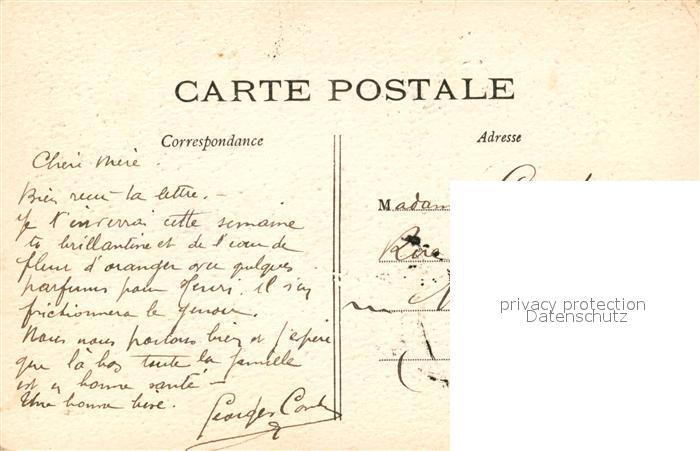 CARTE POSTALE
Correspondance
Adresse
Chère Mère.
Bien reçu ta lettre. –
Je t'enverrai cette semaine
ta brillantine et de l'eau de
fleur d'oranger avec quelques
parfums pour Henri. Il s'en
frictionnera le genou.
Nous nous portons bien et j'espère
que là bas toute la famille
est en bonne santé –
Une bonne bise.
Georges
Madam
privacy protection
Datenschutz